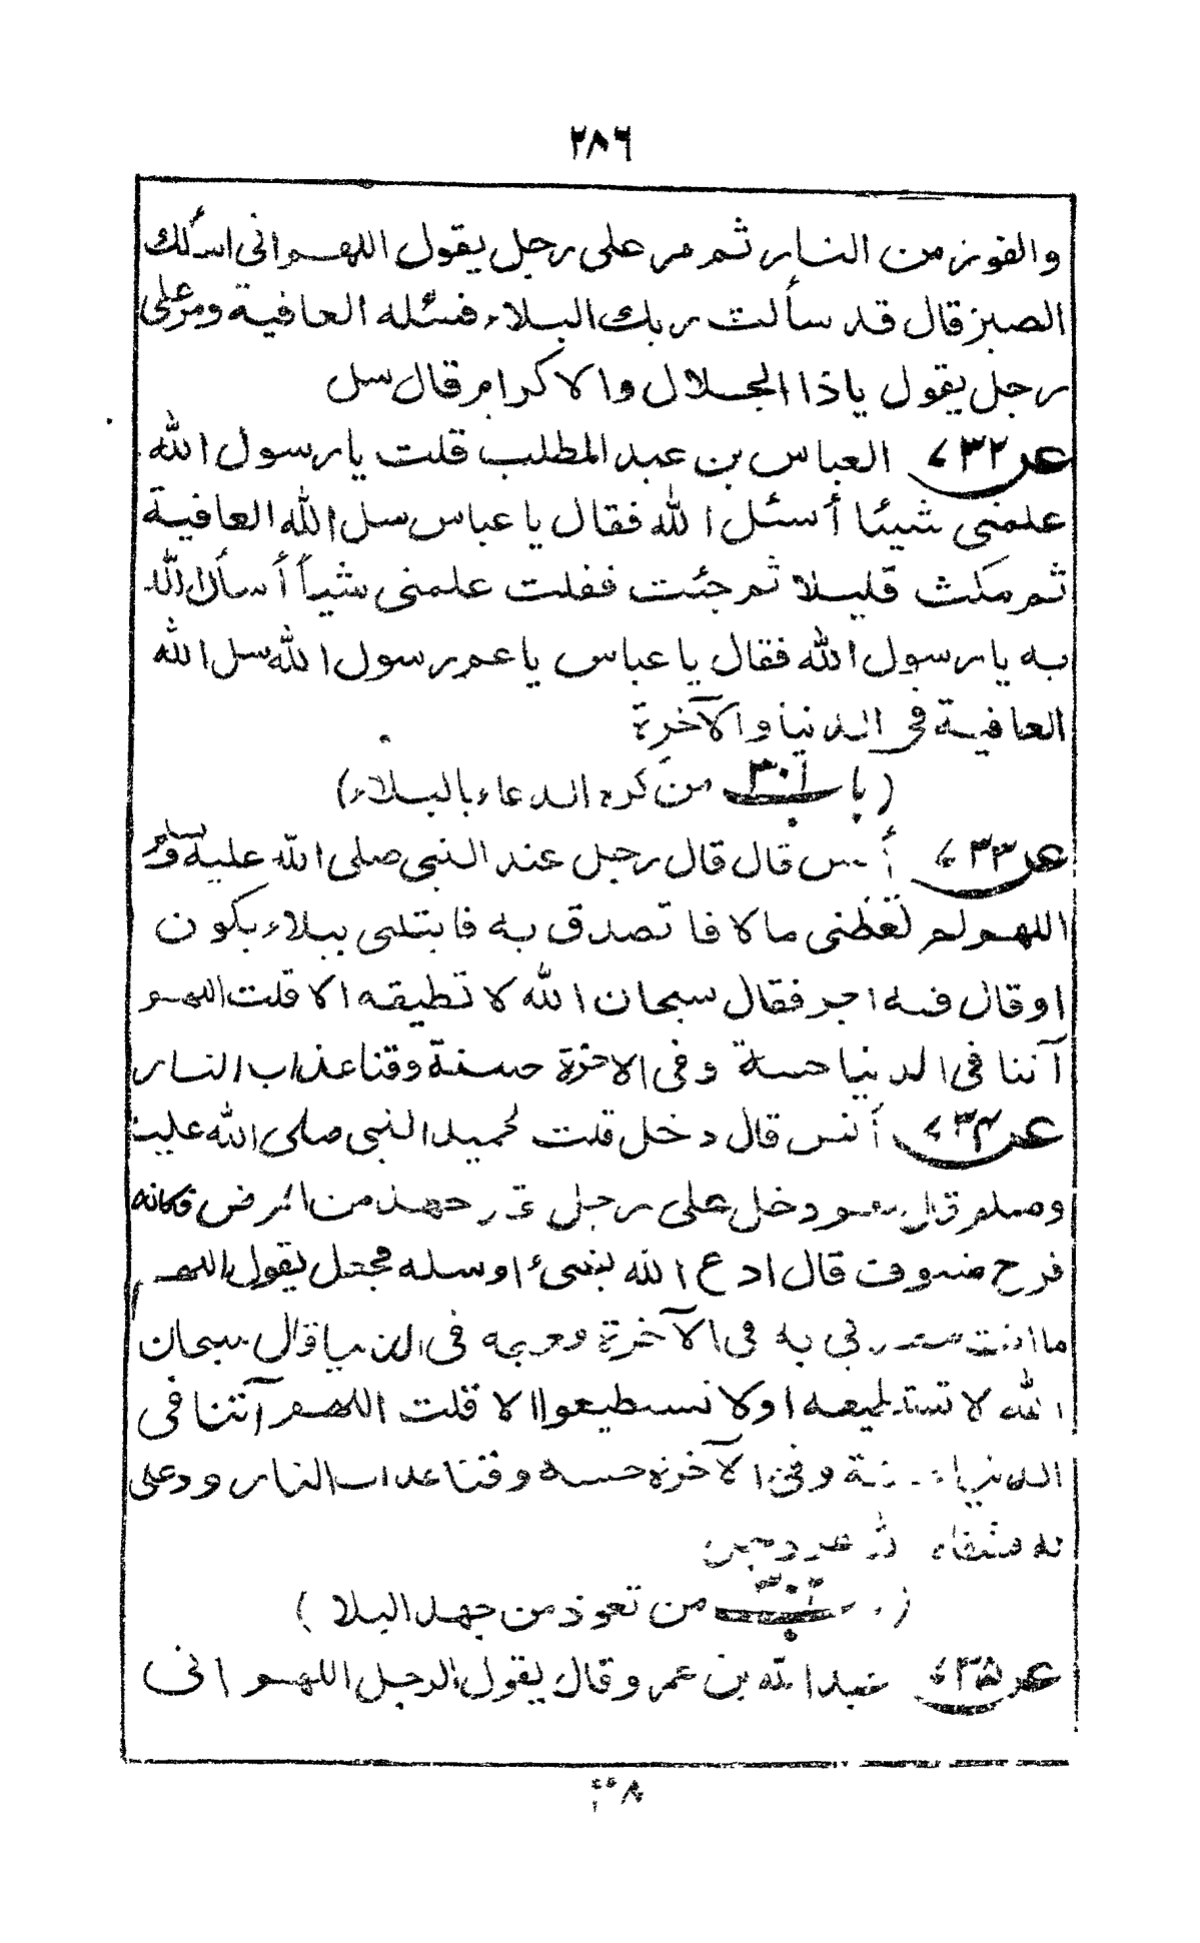 ٢٨٦
والفوز من النار ثم مر على رجل يقول اللهم انى اسألك
الصبر قال قد سألت ربك البلاء فسئله العافية ومر على
رجل يقول ياذا الجلال والاكرام قال سل
عر ٧٣٢ العباس بن عبد المطلب قلت يا رسول الله
علمنى شيئا أسئل الله فقال يا عباس سل الله العافية
ثم مكث قليلا ثم جئت فقلت علمنى شيأ أسأل الله
به يا رسول الله فقال يا عباس يا عم رسول الله سل الله
العافية فى الدنيا والآخرة
(باب ٣٠١ من كره الدعاء بالبلاء)
عر ٧٣٣ أنس قال قال رجل عند النبى صلى الله عليه وسلم
اللهم لم تعطنى مالا فا تصدق به فابتلى ببلاء يكون
او قال فيه اجر فقال سبحان الله لا تطيقه الا قلت اللهم
آتنا فى الدنيا حسنة وفى الاخرة حسنة وقنا عذاب النار
عر ٧٣٤ أنس قال دخل قلت لحميد النبى صلى الله عليه
وسلم قال نعم ودخل على رجل قد جهد من المرض فكانه
فرخ منتوف قال ادع الله بشىء او سله فجعل يقول اللهم
ما انت معذبي به فى الآخرة فعجله فى الدنيا قال سبحان
الله لا تستطيعه او لا تستطيعوا الا قلت اللهم آتنا فى
الدنيا حسنة وفى الآخرة حسنة وقنا عذاب النار ودعى
له فشفاه الله عز وجل
(باب ٣٠٢ من تعوذ من جهد البلا)
عر ٧٣٥ عبد الله بن عمرو قال يقول الرجل اللهم انى